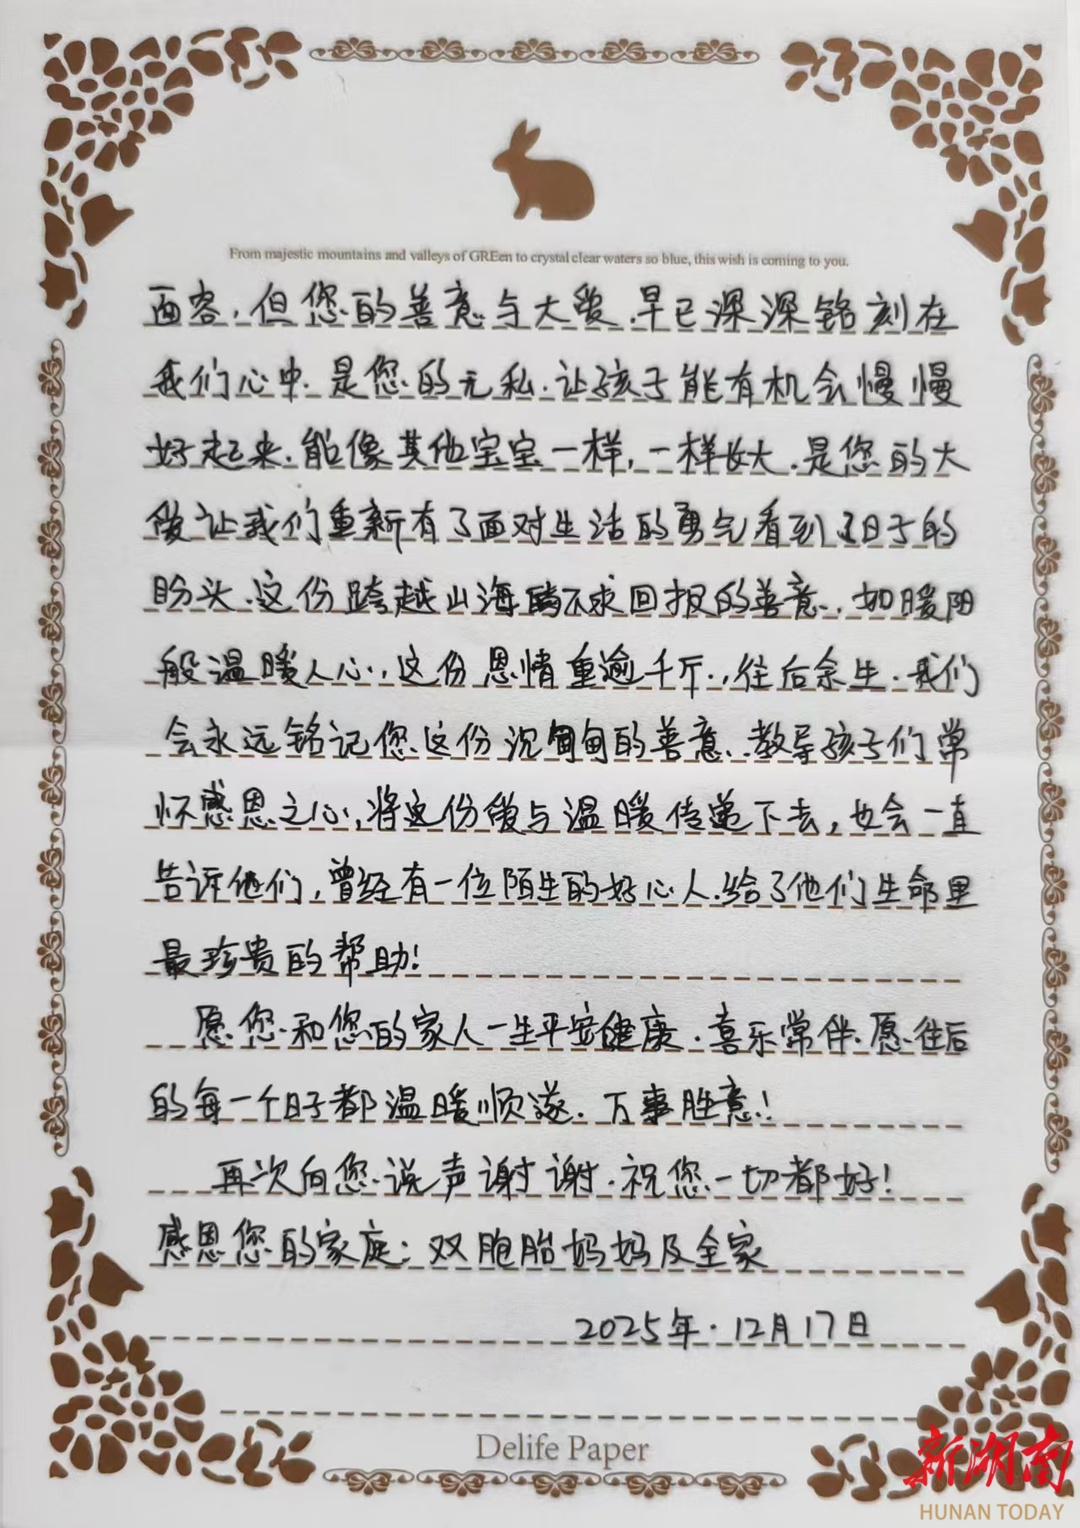 From majestic mountains and valleys of GREen to crystal clear waters so blue, this wish is coming to you.
面容,但您的善意与大爱.早已深深铭刻在
我们心中.是您的无私.让孩子能有机会慢慢
好起来.能像其他宝宝一样,一样长大.是您的大
爱让我们重新有了面对生活的勇气看到了日子的
盼头.这份跨越山海不求回报的善意.如暖阳
般温暖人心,这份恩情重逾千斤.,往后余生.我们
会永远铭记您这份沉甸甸的善意.教导孩子们常
怀感恩之心,将这份爱与温暖传递下去,也会一直
告诉他们,曾经有一位陌生的好心人.给了他们生命里
最珍贵的帮助!
愿您和您的家人一生平安健康.喜乐常伴.愿往后
的每一个日子都温暖顺遂.万事胜意!
再次向您说声谢谢.祝您一切都好!
感恩您的家庭:双胞胎妈妈及全家
2025年.12月17日
Delife Paper
新湖南
HUNAN TODAY